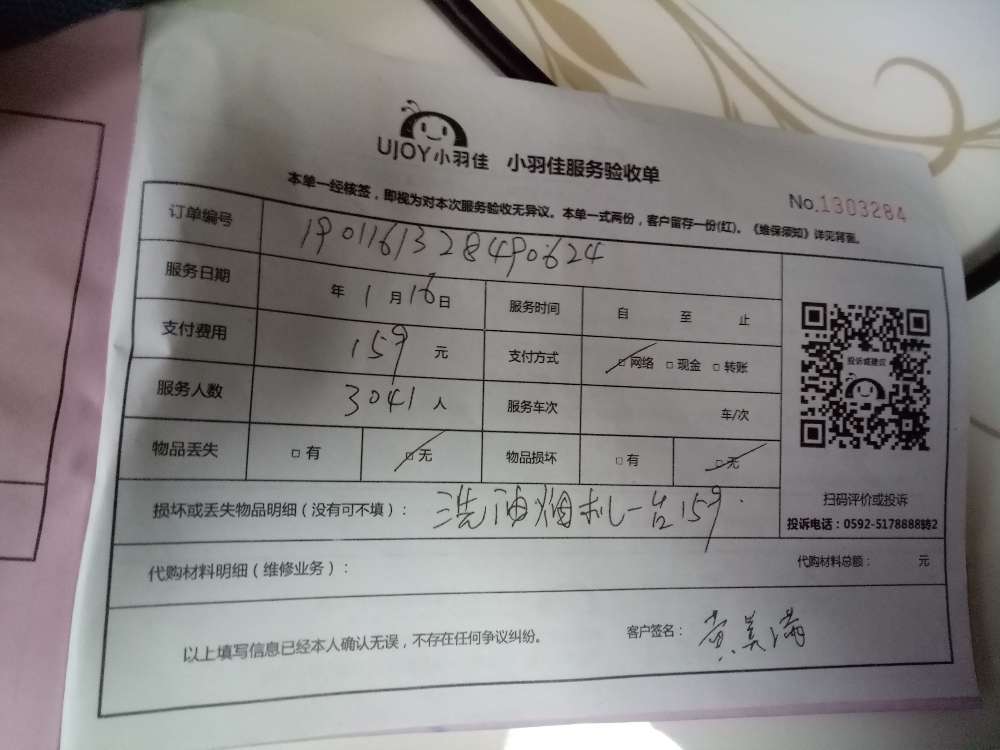 UJOY小羽佳 小羽佳服务验收单
No.1303284
本单一经核签，即视为对本次服务验收无异议。本单一式两份，客户留存一份(红)。《维保须知》详见背面。
订单编号 1901161328490624
服务日期 年 1 月 16 日 服务时间 自 至 止
支付费用 159 元 支付方式 □网络 □现金 □转账
服务人数 3041 人 服务车次 车/次
物品丢失 □有 □无 物品损坏 □有 □无
投诉或建议
扫码评价或投诉
投诉电话：0592-5178888转2
损坏或丢失物品明细（没有可不填）： 洗油烟机一台159
代购材料明细（维修业务）： 代购材料总额： 元
以上填写信息已经本人确认无误，不存在任何争议纠纷。 客户签名： 黄美满